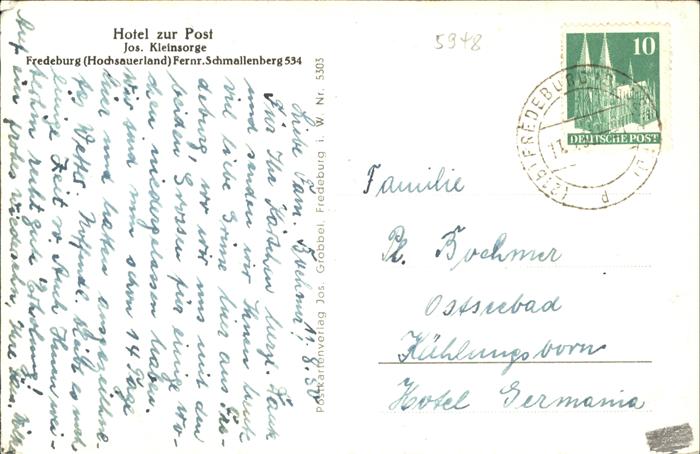 Hotel zur Post
Jos. Kleinsorge
Fredeburg (Hochsauerland) Fernr. Schmallenberg 534
5948
10
DEUTSCHE POST
FREDEBURG
Postkartenverlag Jos. Grobbel, Fredeburg i. W. Nr. 5303
11.8.50
Liebe Fam. Boehmer!
Für Ihr Kärtchen herzl. Dank
und senden wir Ihnen heute
viel liebe Grüsse hier aus Fre-
deburg, wo wir uns mit den
beiden Grossen für einige Wo-
chen niedergelassen haben.
Wir sind nun schon 14 Tage
hier und hatten ausgezeichne-
tes Wetter. Hoffentl. bleibt es noch
einige Zeit so. Auch Ihnen wei-
terhin recht gute Erholung!
Auf ein frohes Wiedersehn, Ihre Fam.
Familie
Ph. Boehmer
Ostseebad
Kühlungsborn
Hotel Germania